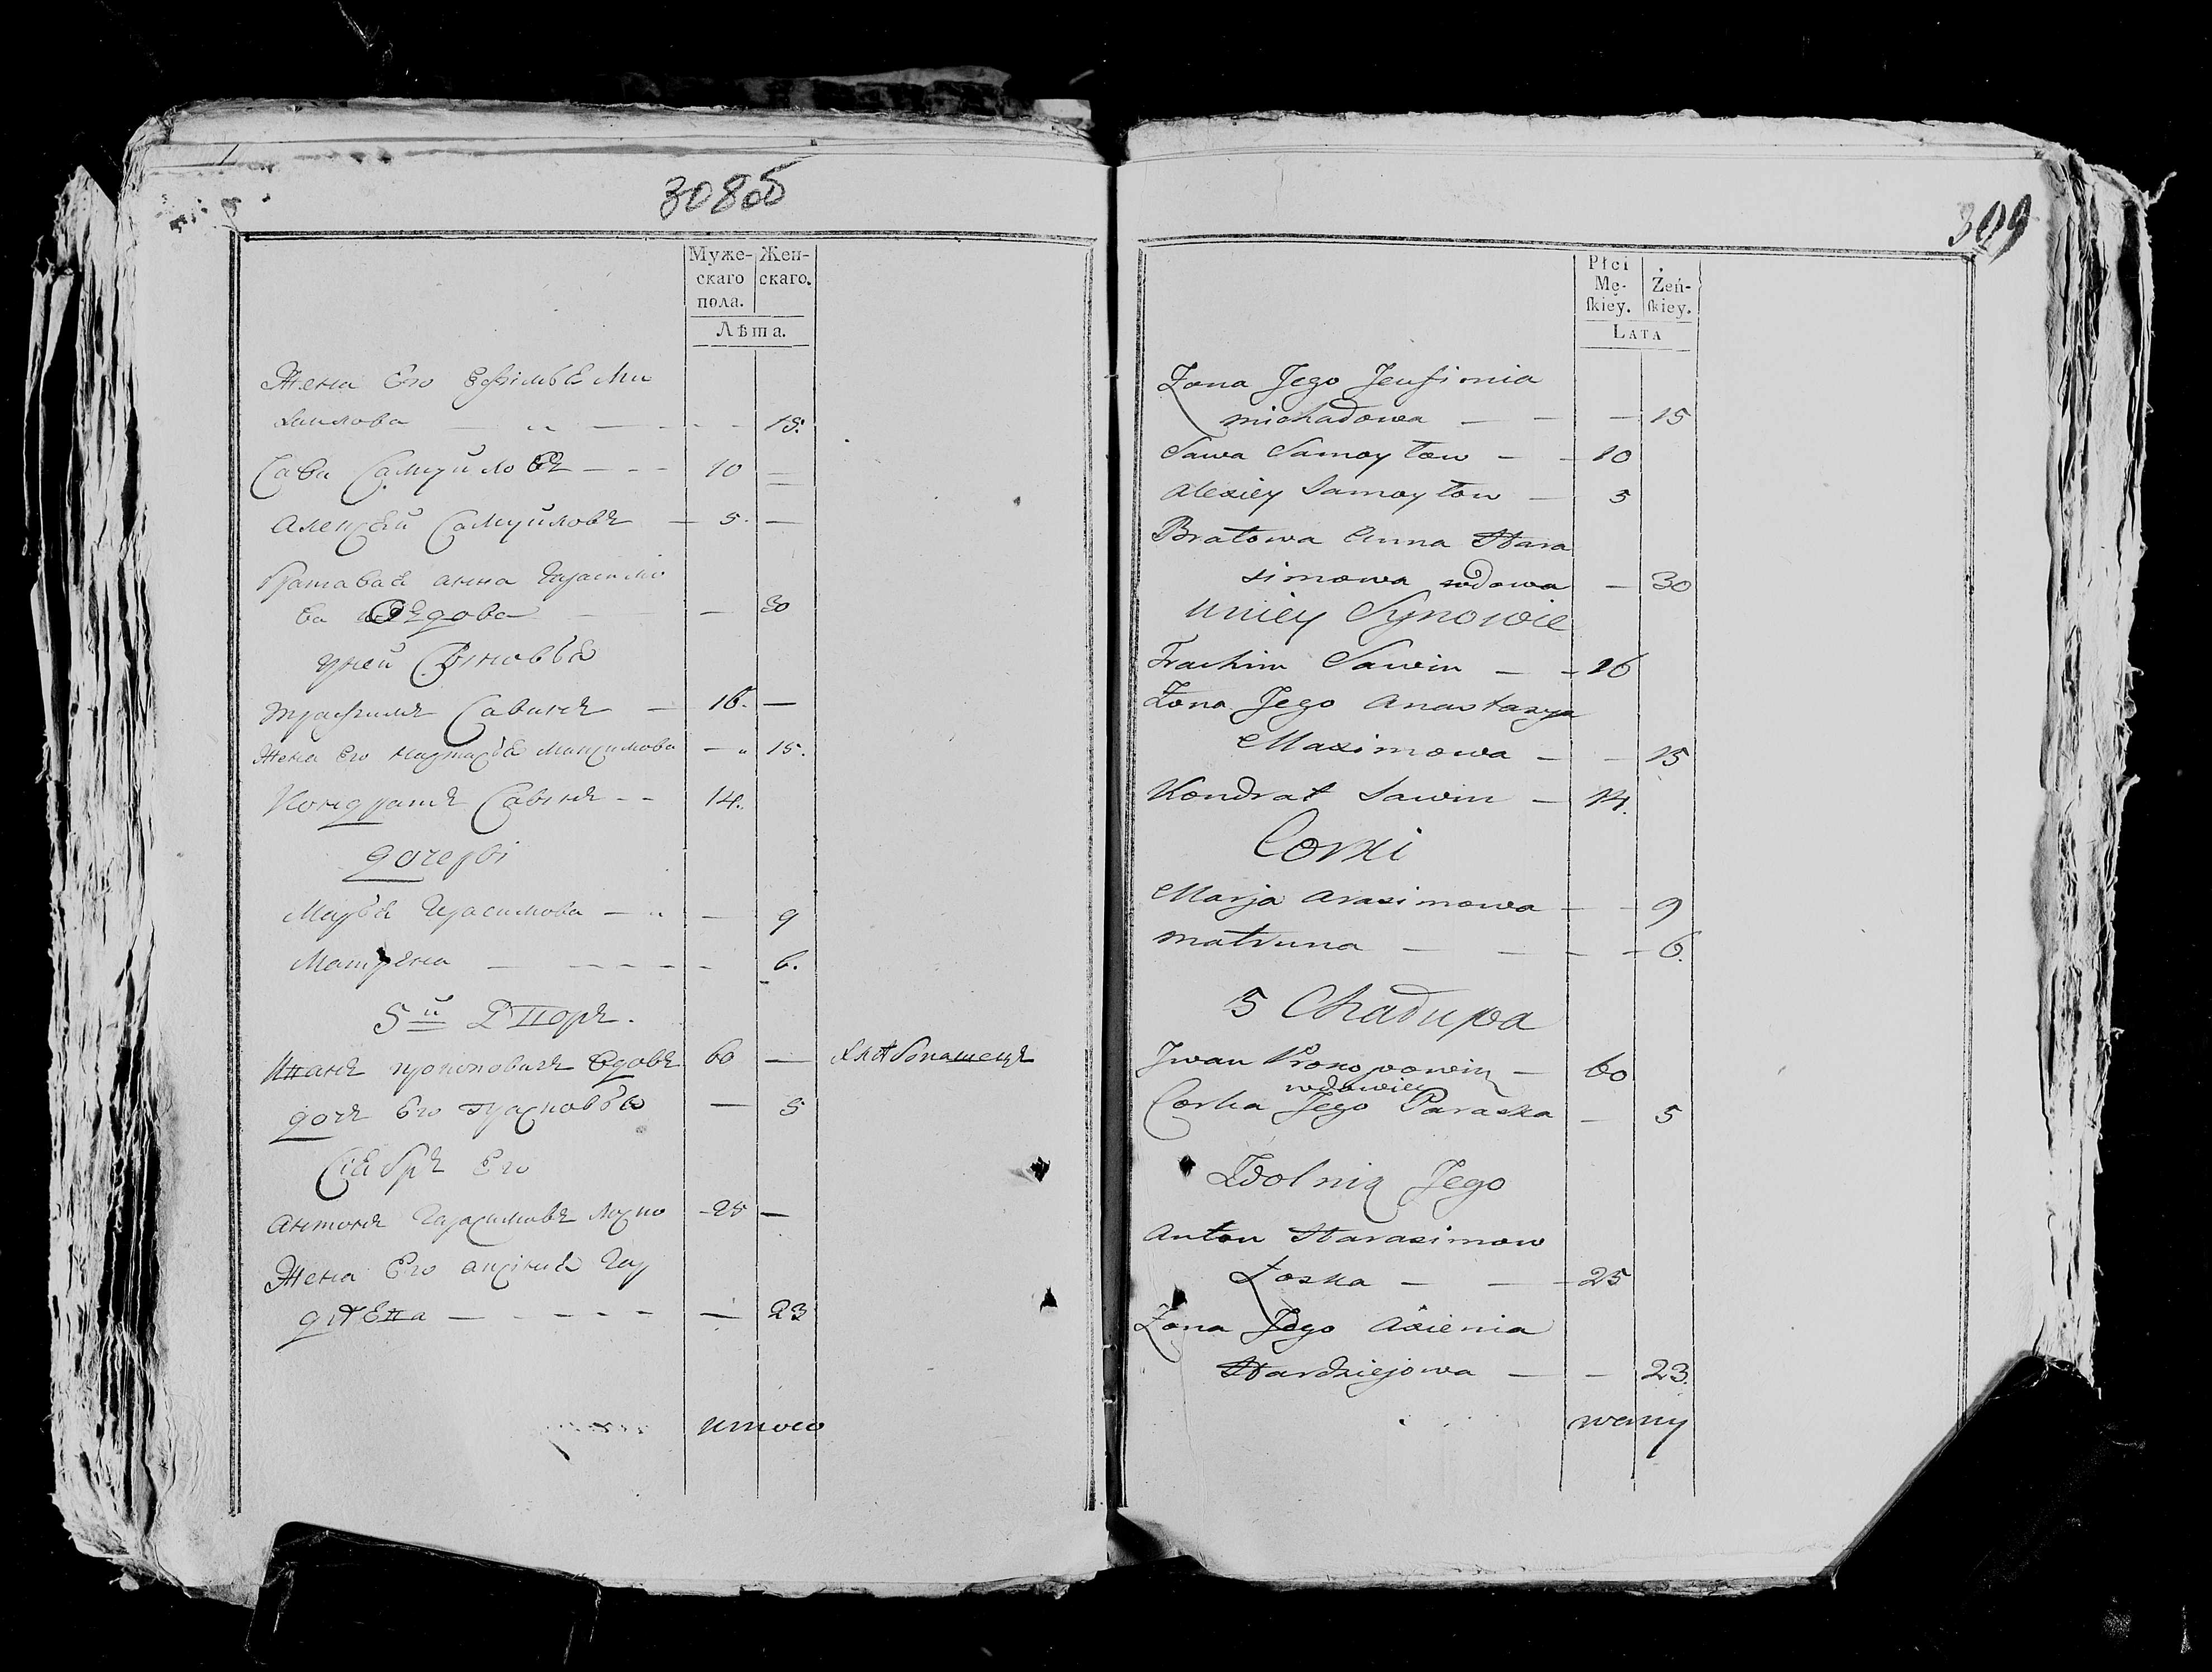 308об
Муже-
скаго
пола.
Жен-
скаго.
Лѣта.
Жена Его Ефимья Ми
хайлова — — — 15.
Сава Самуйловъ — — 10 —
Алексѣй Самуйловъ — 5. —
Братавая анна Герасимо
ва вдова — 30
у ней Сыновья
Трафимъ Савинъ — 16. —
Жена Его настасья Максимова — 15.
Кондратъ Савинъ — — 14.
дочери
Марья Герасимова — — 9
Матрена — — — — 6.
5й Дворъ.
Иванъ прокоповичъ вдовъ 60 — Хлѣбопашецъ
дочь Его прасковья — 5
Сябръ Его
Антонъ Гарасимовъ Лоско 25 —
Жена Его аксинья Гор
дѣева — — — — — 23
итого
309
Płci
Mę-
ſkiey.
Żeń-
ſkiey.
LATA
Zona Jego Jeufimia
michadowa — — — 15
Sawa Samoyłow — — 10
Alexiey Samoyłow — 5
Bratowa Anna Hara
simowa wdowa — 30
Uniey Synowie
Trachim Sawin — — 16
Zona Jego Anastazya
Maximowa — — 15
Kondrat Sawin — 14.
Corki
Marja Arasimowa — — 9
matruna — — — — 6.
5 Chadupa
Jwan Prokopowicz — 60
wdowiec
Corka Jego Paraska — 5
Jego
Anton Harasimow
Łoska — — — 25
Zona Jego Axienia
Hardziejowa — — 23.